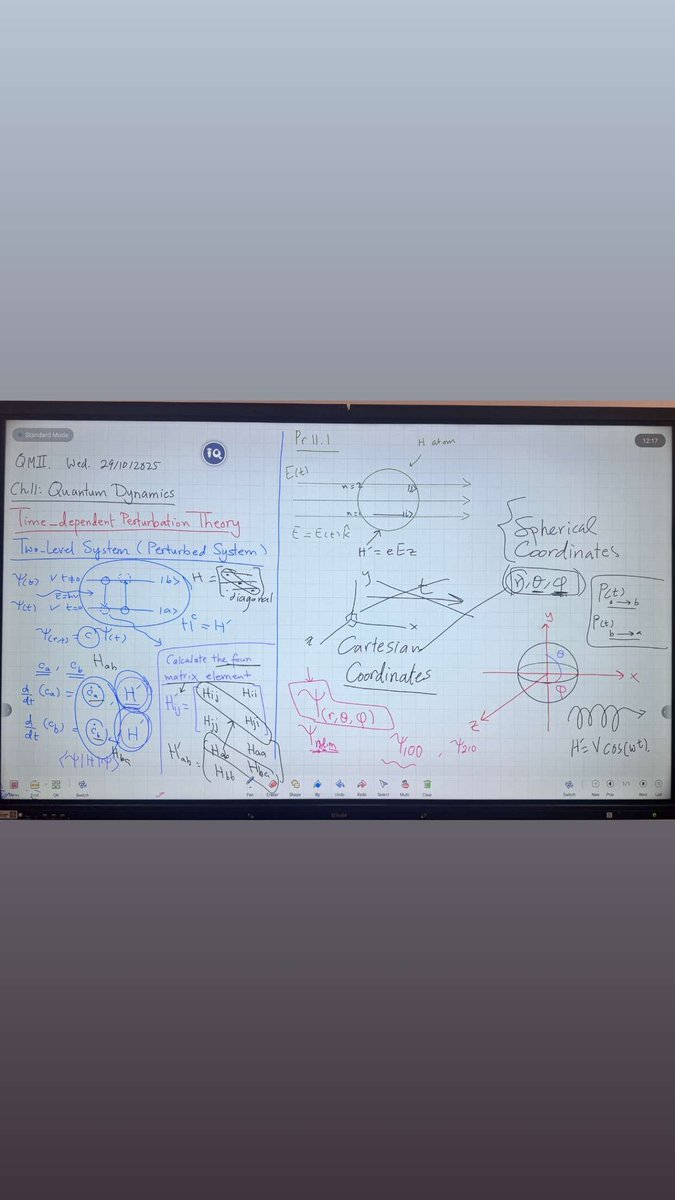 Standard Mode
IQ
12:17
QMII. Wed. 29/10/2025
Ch.11: Quantum Dynamics
Time_dependent Perturbation Theory
Two-Level System (Perturbed System)
Ψ(t) ∀ t≠0
|b>
H =
diagonal
E=hν
Ψ(t) ∀ t=0
|a>
H^c = H'
Ψ(r,t) = c Ψ(t)
ca, cb
Hab
d/dt (ca) = ċa, H'
d/dt (cb) = ċb, H'
Hba
<Ψ|H|Ψ>
Calculate the four
matrix element
H'ij = [Hij Hii
Hjj Hji]
H'ab = [Hab Haa
Hbb Hba]
Pr 11.1
H atom
E(t)
n=2
n=1
E = E(t) k̂
H' = eEz
y
t
x
z
Cartesian
Coordinates
Ψ(r,θ,φ)
Ψnlm
Ψ100, Ψ210
Spherical
Coordinates
(r, θ, φ)
P(t) a→b
P(t) b→a
y
θ
x
φ
z
H' = V cos(ωt).
Menu
QR
Switch
Pen
Eraser
Shape
Bg
Undo
Redo
Select
Multi
Clear
Switch
New
Prev
1/1
Next